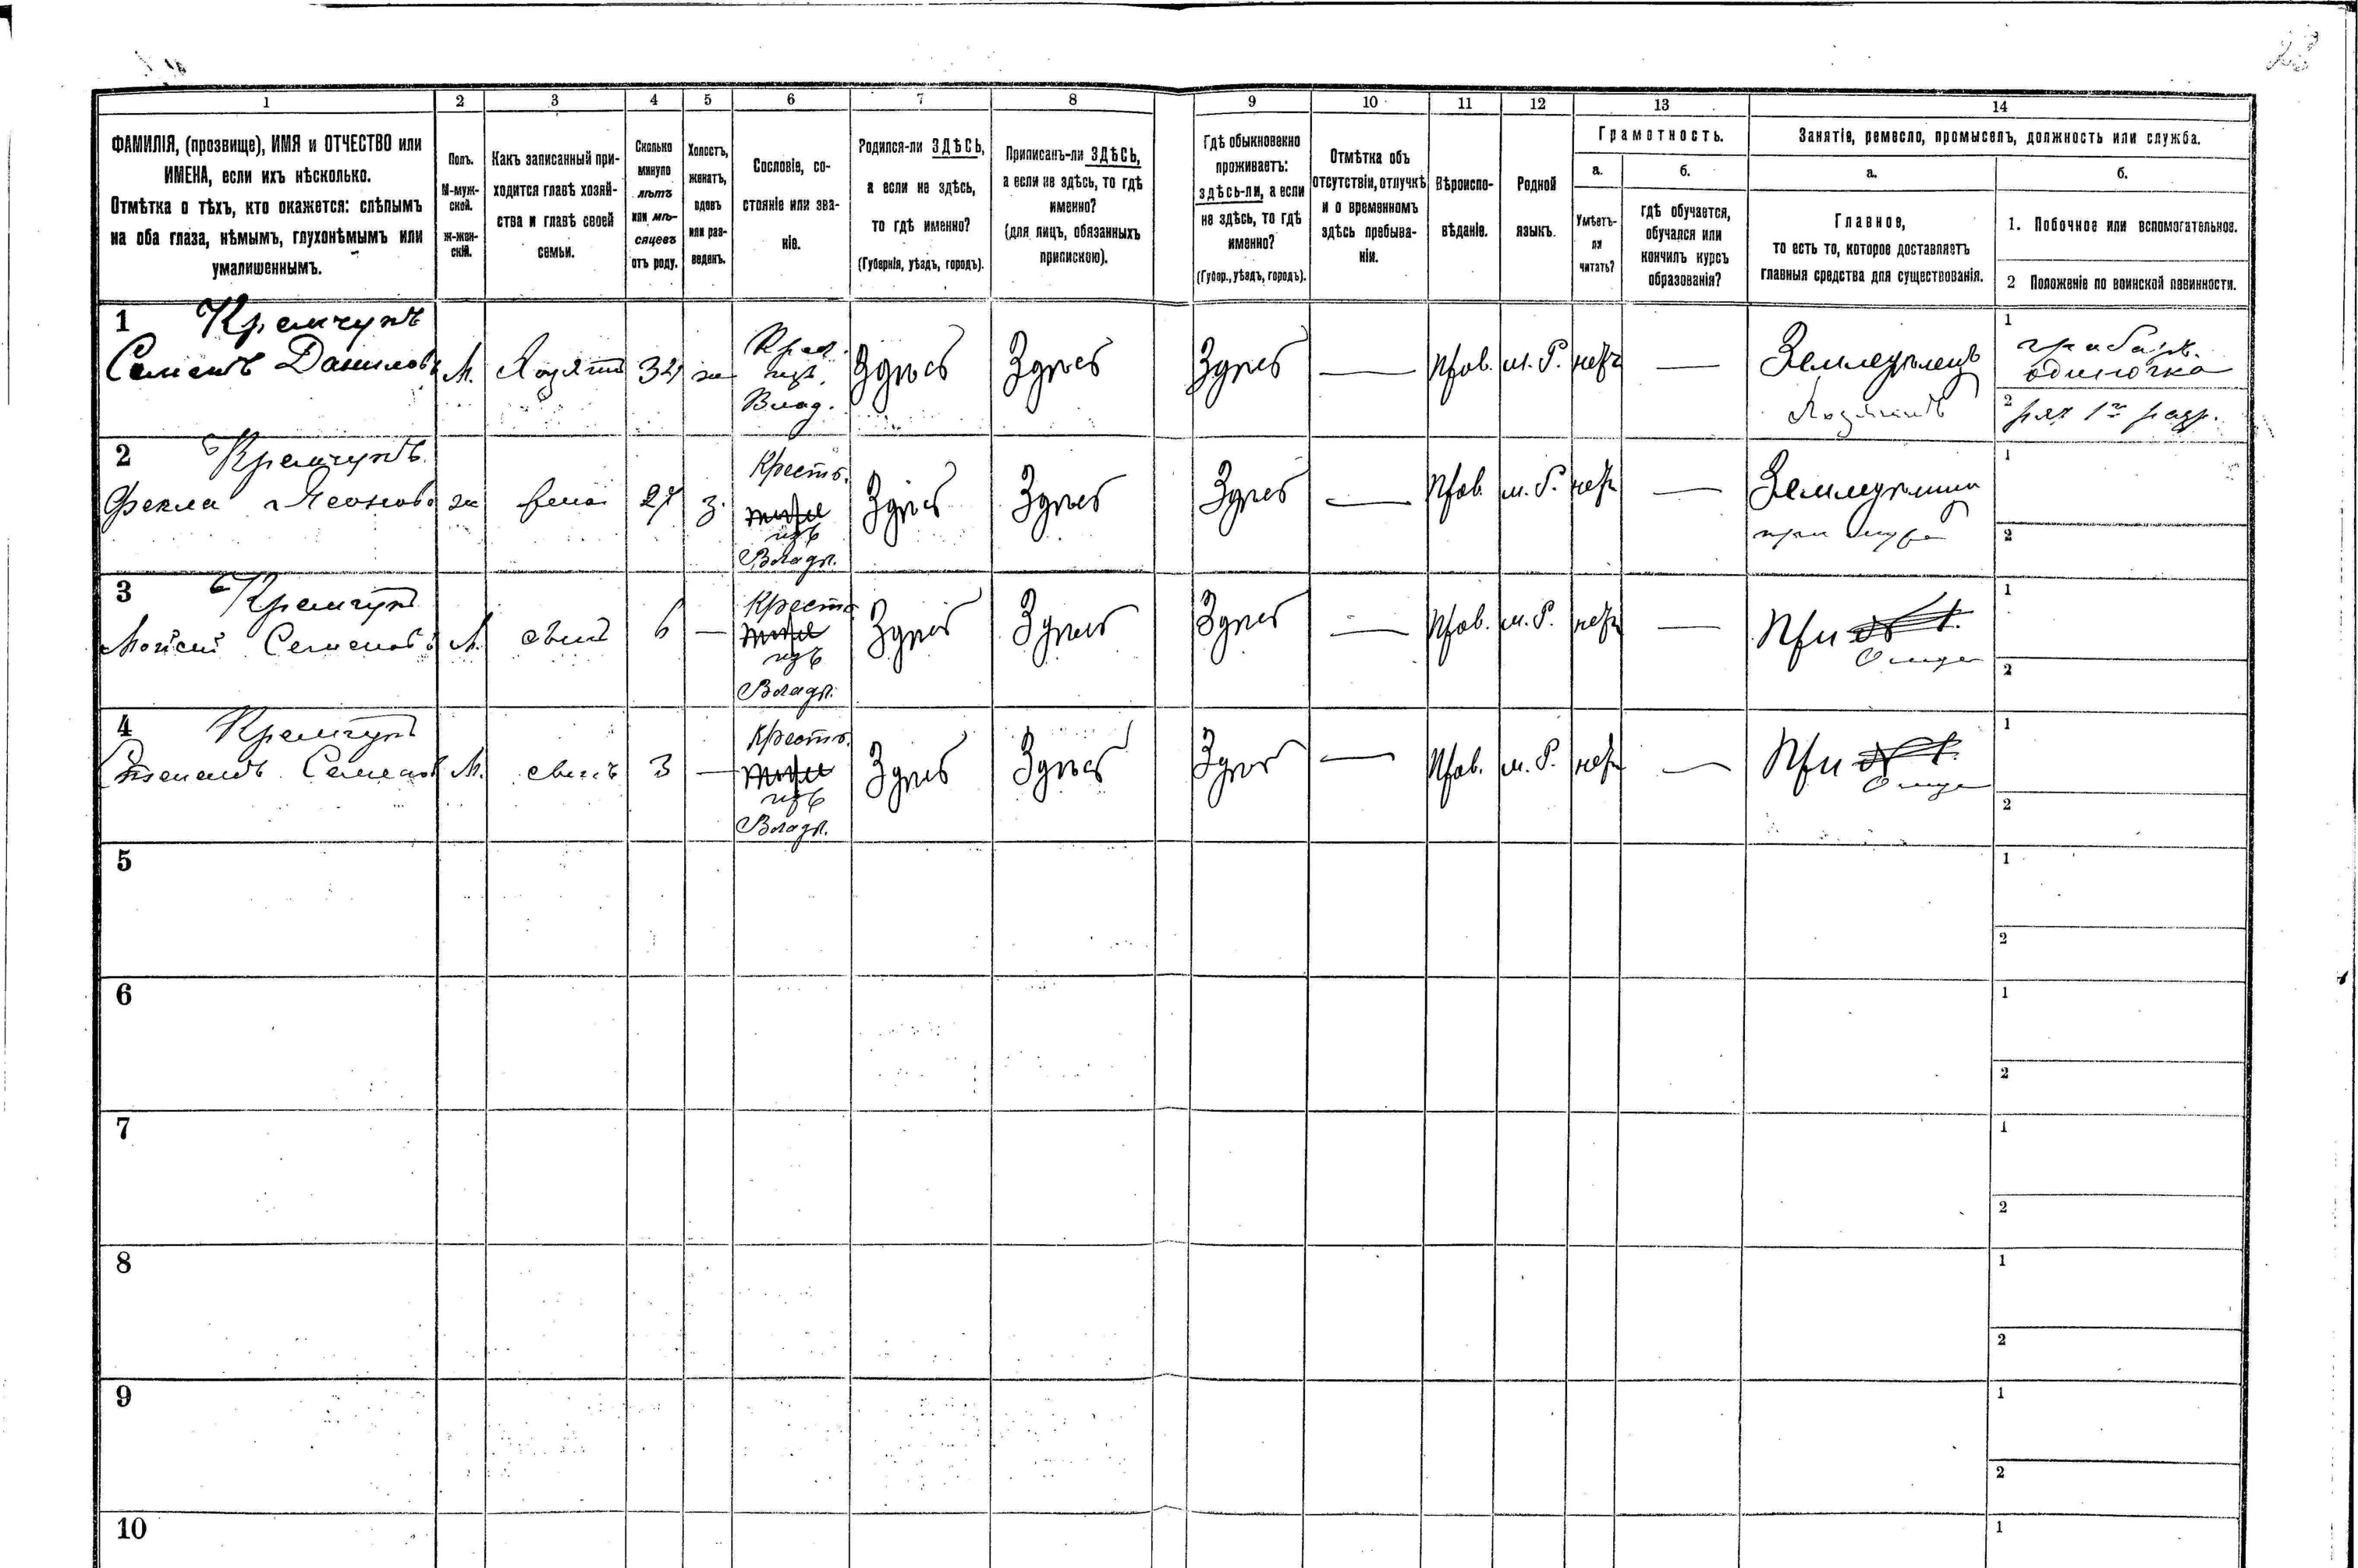 23
1 2 3 4 5 6 7 8 9 10 11 12 13 14
ФАМИЛІЯ, (прозвище), ИМЯ и ОТЧЕСТВО или
ИМЕНА, если ихъ нѣсколько.
Отмѣтка о тѣхъ, кто окажется: слѣпымъ
на оба глаза, нѣмымъ, глухонѣмымъ или
умалишеннымъ.
Полъ.
М-муж-
ской.
ж-жен-
скій.
Какъ записанный при-
ходится главѣ хозяй-
ства и главѣ своей
семьи.
Сколько
минуло
лѣтъ
или мѣ-
сяцевъ
отъ роду.
Холостъ,
женатъ,
вдовъ
или раз-
веденъ.
Сословіе, со-
стояніе или зва-
ніе.
Родился-ли ЗДѢСЬ,
а если не здѣсь,
то гдѣ именно?
(Губернія, уѣздъ, городъ).
Приписанъ-ли ЗДѢСЬ,
а если не здѣсь, то гдѣ
именно?
(для лицъ, обязанныхъ
припискою).
Гдѣ обыкновенно
проживаетъ:
здѣсь-ли, а если
не здѣсь, то гдѣ
именно?
(Губер., уѣздъ, городъ).
Отмѣтка объ
отсутствіи, отлучкѣ
и о временномъ
здѣсь пребыва-
ніи.
Вѣроиспо-
вѣданіе.
Родной
языкъ.
Грамотность.
а.
Умѣетъ-
ли
читать?
б.
гдѣ обучается,
обучался или
кончилъ курсъ
образованія?
Занятіе, ремесло, промыселъ, должность или служба.
а.
Главное,
то есть то, которое доставляетъ
главныя средства для существованія.
б.
1. Побочное или вспомогательное.
2 Положеніе по воинской повинности.
1 Кремчукъ
Семенъ Даниловъ М. Хозяинъ 32 ж Крест. изъ Влад. Здѣсь Здѣсь Здѣсь — Прав. м. Р. нетъ — Земледѣлецъ
Хозяинъ
1 грабарь.
одиночка
2 рат 1го разр.
2 Кремчукъ
Фекла Леонова ж жена 27 з. Крестъ. изъ Владѣл. Здѣсь Здѣсь Здѣсь — Прав. м. Р. нетъ —
при мужѣ
1
2
3 Кремчукъ
Мойсей Семеновъ М. сынъ 6 — Крестъ изъ Владѣл. Здѣсь Здѣсь Здѣсь — Прав. м. Р. нетъ — При
Отцѣ
1
2
4 Кремчукъ
Степанъ Семеновъ М. сынъ 3 — Крестъ. изъ Владѣл. Здѣсь Здѣсь Здѣсь — Прав. м. Р. нетъ — При
Отцѣ
1
2
5
1
2
6
1
2
7
1
2
8
1
2
9
1
2
10
1